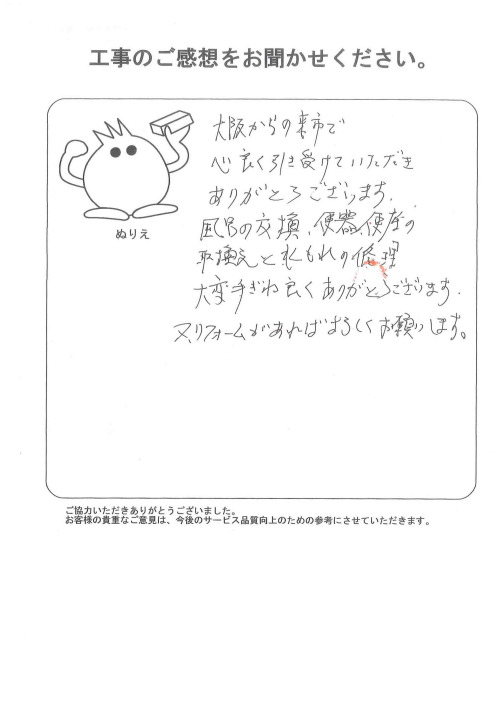 工事のご感想をお聞かせください。
大阪からの来市で
心良く引き受けていただき
ありがとうございます.
風呂の交換、便器、便座の
取換えと水もれの修理
ぬりえ
大変手ぎわ良くありがとうございます.
又、リフォームがあればよろしくお願いします。
ご協力いただきありがとうございました。
お客様の貴重なご意見は、今後のサービス品質向上のための参考にさせていただきます。